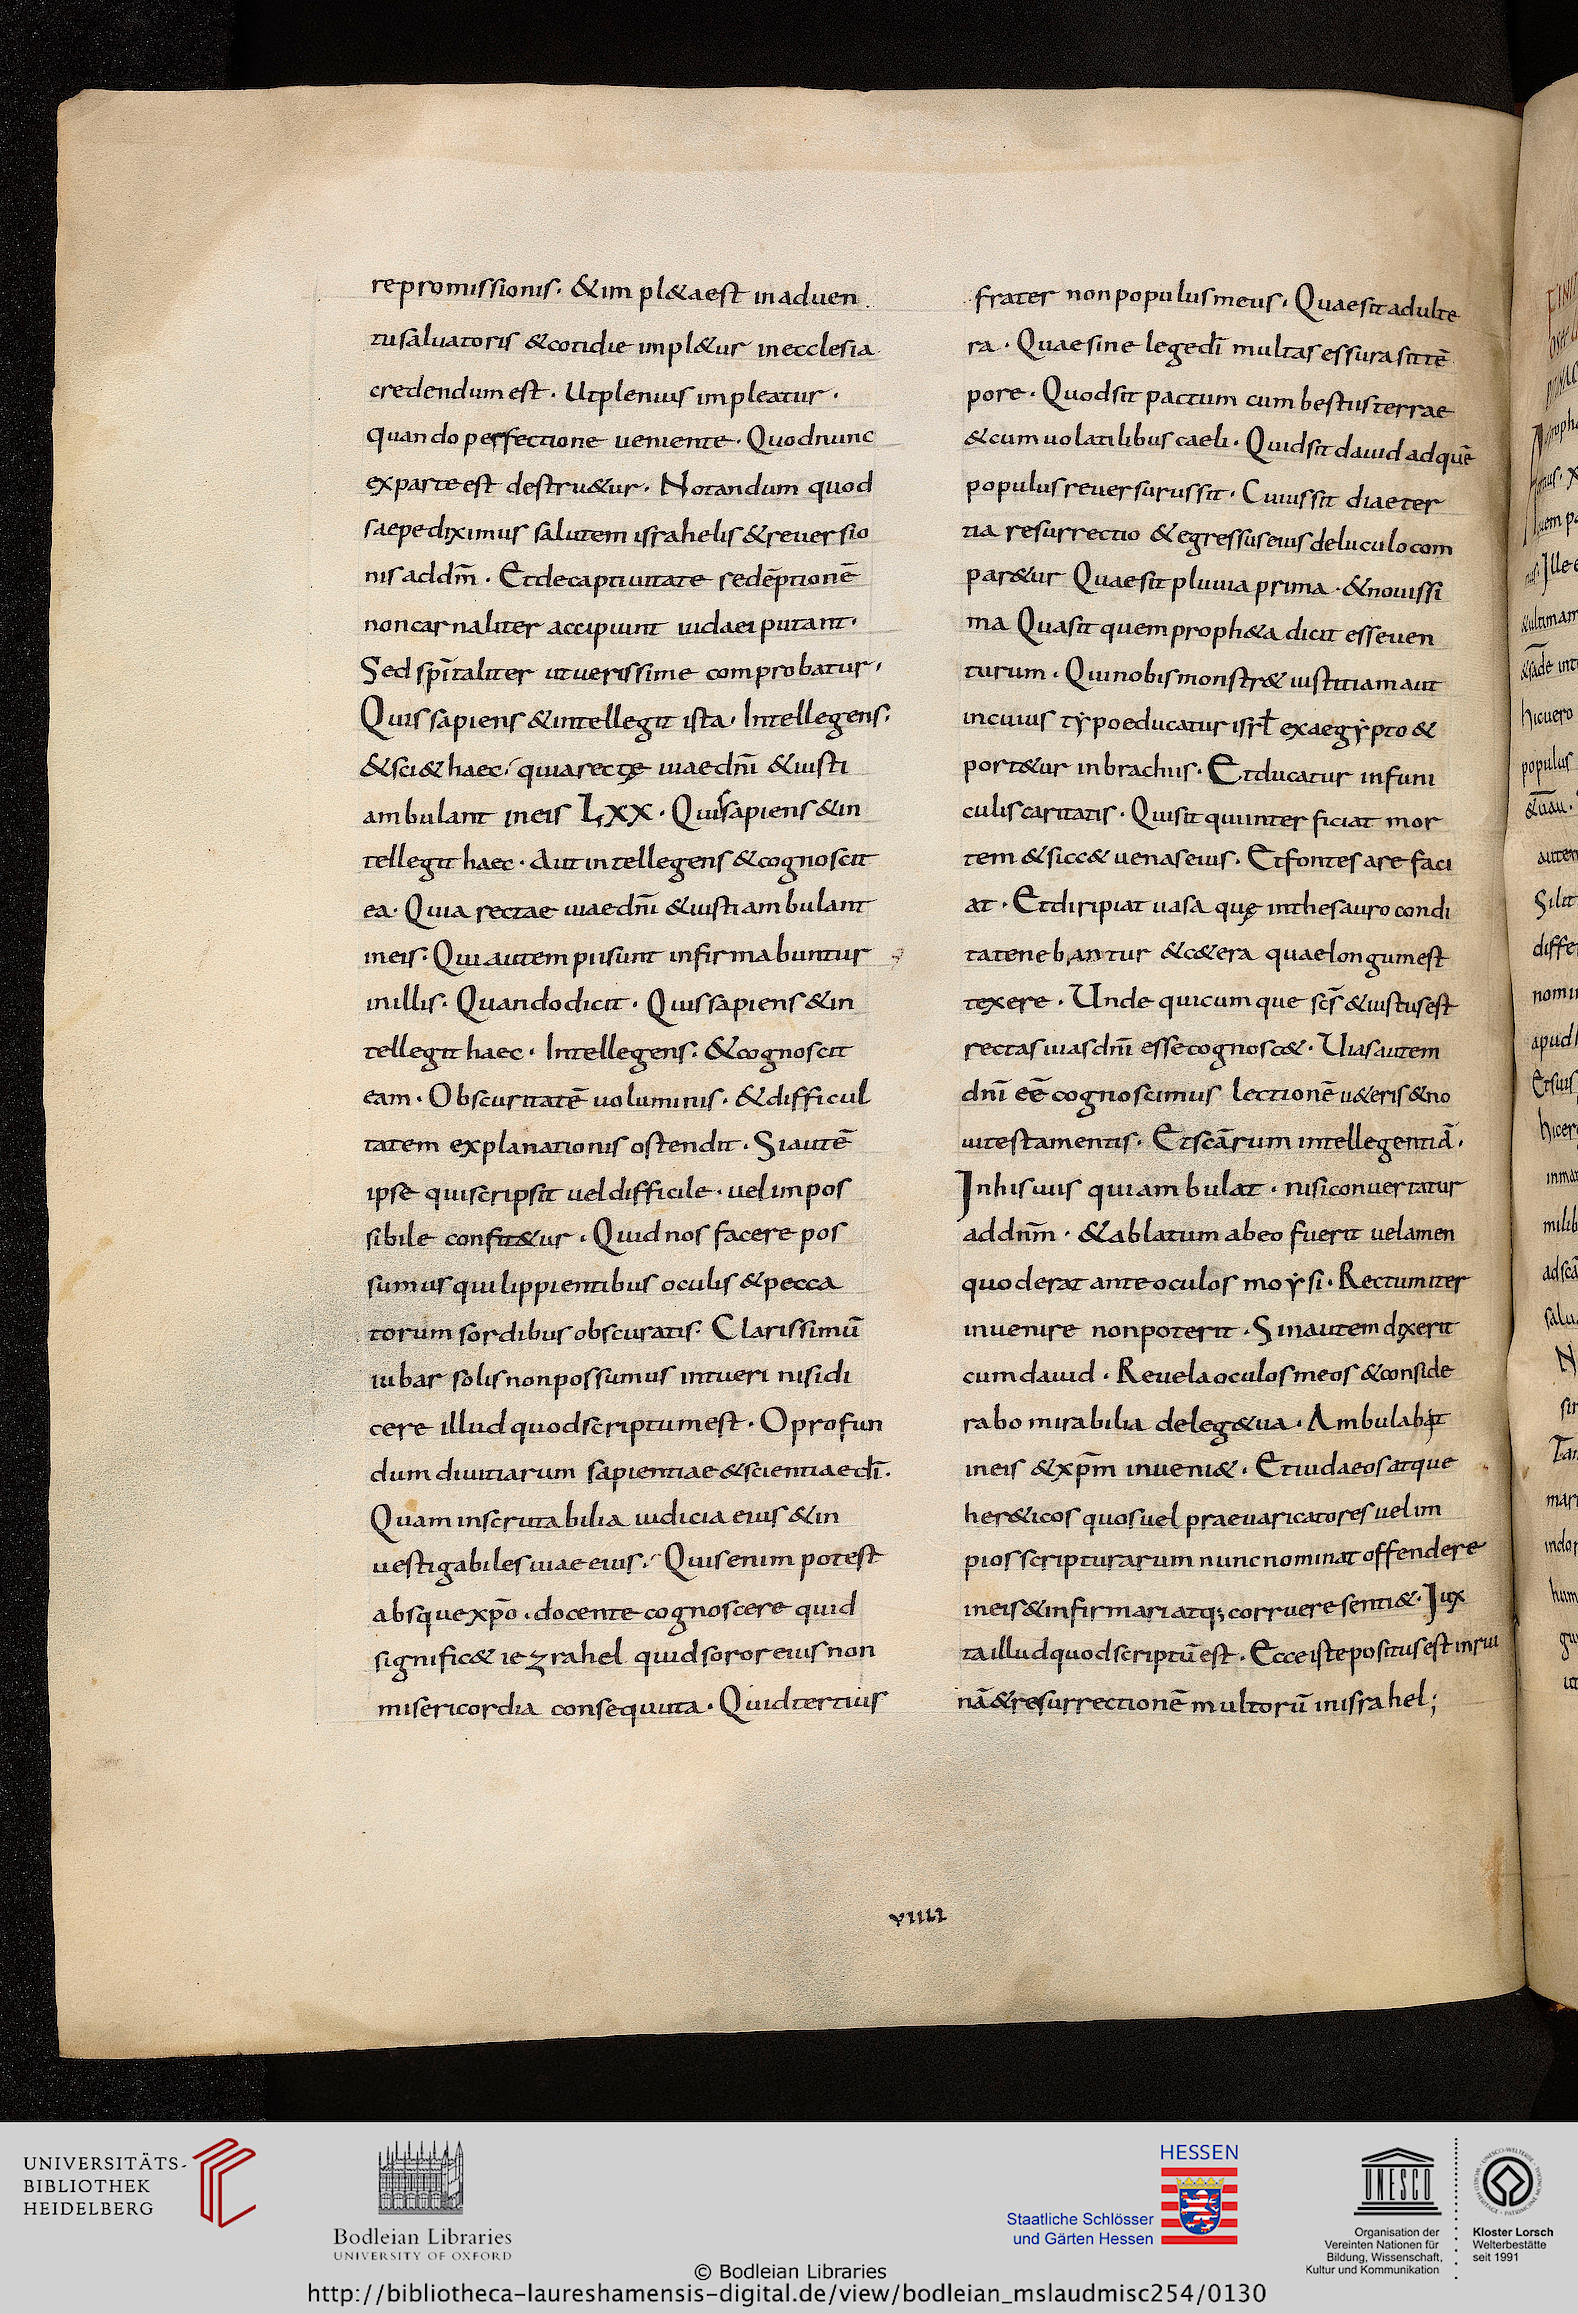 repromissionis. &impl&aest inaduen
tusaluatoris &cotidie impl&ur inecclesia
credendumest. Utplenius impleatur.
quando perfectione ueniente. Quodnunc
exparteest destru&ur. Notandum quod
saepediximus salutem israhelis &reuersio
nisaddm̄. Etdecaptiuitate redēptionē
noncarnaliter accipiunt iudaei putant.
Sed sp̄italiter utuerissime comprobatur,
Quissapiens &intellegit ista. Intellegens.
&sci&haec. quiarectę uiaedn̄i &iusti
ambulant ineis LXX. Quissapiens &in
tellegit haec. Aut intellegens &cognoscit
ea. Quia rectae uiaedn̄i &iustiambulant
ineis. Quiautempiisunt infirmabuntur
inillis. Quandodicit. Quissapiens &in
tellegit haec. Intellegens. &cognoscit
eam. Obscuritatē uoluminis. &difficul
tatem explanationis ostendit. Siautē
ipse quiscripsit ueldifficile. uelimpos
sibile confit&ur. Quidnos facere pos
sumus quilippientibus oculis &pecca
torum sordibus obscuratis. Clarissimū
iubar solisnonpossumus intueri nisidi
cere illudquodscriptumest. Oprofun
dum diuitiarum sapientiae&scientiaedī.
Quam inscrutabilia iudicia eius &in
uestigabilesuiaeeius. Quisenim potest
absquexp̄o. docente cognoscere quid
signific& iezrahel quidsororeiusnon
misericordia consequuta. Quidtertius
frater nonpopulusmeus. Quaesitadulte
ra. Quaesine legedī multassessurasittē
pore. Quodsit pactum cumbestiisterrae
&cumuolatilibus caeli. Quidsit dauid adquē
populusreuersurussit. Cuiussit diaeter
tia resurrectio &egressuseiusdeluculocom
par&ur Quaesit pluuia prima. &nouissi
ma Quasit quemproph&a dicit esseuen
turum. Quinobismonstr& iustitiamaut
incuius typoeducatur isrł exaegypto &
port&ur inbrachiis. Etducatur infuni
culiscaritatis. Quisit quiinterficiat mor
tem &sicc& uenaseius. Etfontesarefaci
at. Etdiripiat uasa quę inthesaurocondi
tatenebantur &c&era quaelongumest
texere. Unde quicumque sc̄s &iustusest
rectasuiasdn̄i essecognosc&. Uiasautem
dn̄i eē cognoscimus lectionē u&eris&no
uitestamentis. Etscārum intellegentiā.
Inhisuiis quiambulat. nisiconuertatur
addn̄m. &ablatum abeo fuerit uelamen
quoderat anteoculos moysi. Rectumiter
inuenire nonpoterit. Sinautemdixerit
cumdauid. Reuelaoculosmeos &conside
rabo mirabilia deleg&ua. Ambulabit
ineis &xp̄m inueni&. Etiudaeosatque
her&icos quosuel praeuaricatoresuelim
piosscripturarumnuncnominatoffendere
ineis&infirmariatq; corruere senti&. Iux
taillud quodscriptūest. Ecceistepositusest inrui
nā&resurrectionē multorū inisrahel;
VIIII
UNIVERSITÄTS-
BIBLIOTHEK
HEIDELBERG
Bodleian Libraries
UNIVERSITY OF OXFORD
HESSEN
Staatliche Schlösser
und Gärten Hessen
UNESCO
Organisation der
Vereinten Nationen für
Bildung, Wissenschaft,
Kultur und Kommunikation
Kloster Lorsch
Welterbestätte
seit 1991
© Bodleian Libraries
http://bibliotheca-laureshamensis-digital.de/view/bodleian_mslaudmisc254/0130